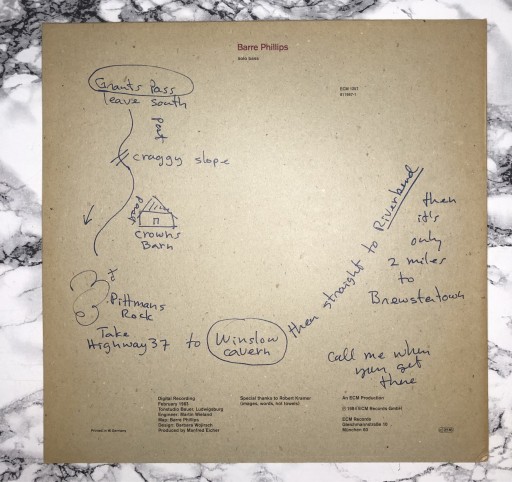 Barre Phillips
solo bass
ECM 1257
Grants Pass
leave south
past
craggy slope
pass
Crowns
Barn
to
Pittmans
Rock
Take
Highway 37 to Winslow
cavern
then straight to Riverbend
then
it's
only
2 miles
to
Brewstertown
call me when
you get
there
Digital Recording
February 1983
Tonstudio Bauer, Ludwigsburg
Engineer: Martin Wieland
Map: Barre Phillips
Design: Barbara Wojirsch
Produced by Manfred Eicher
Special thanks to Robert Kramer
(images, words, hot towels)
An ECM Production
℗ 1984 ECM Records GmbH
ECM Records
Gleichmannstraße 10
München 60
Printed in W.Germany